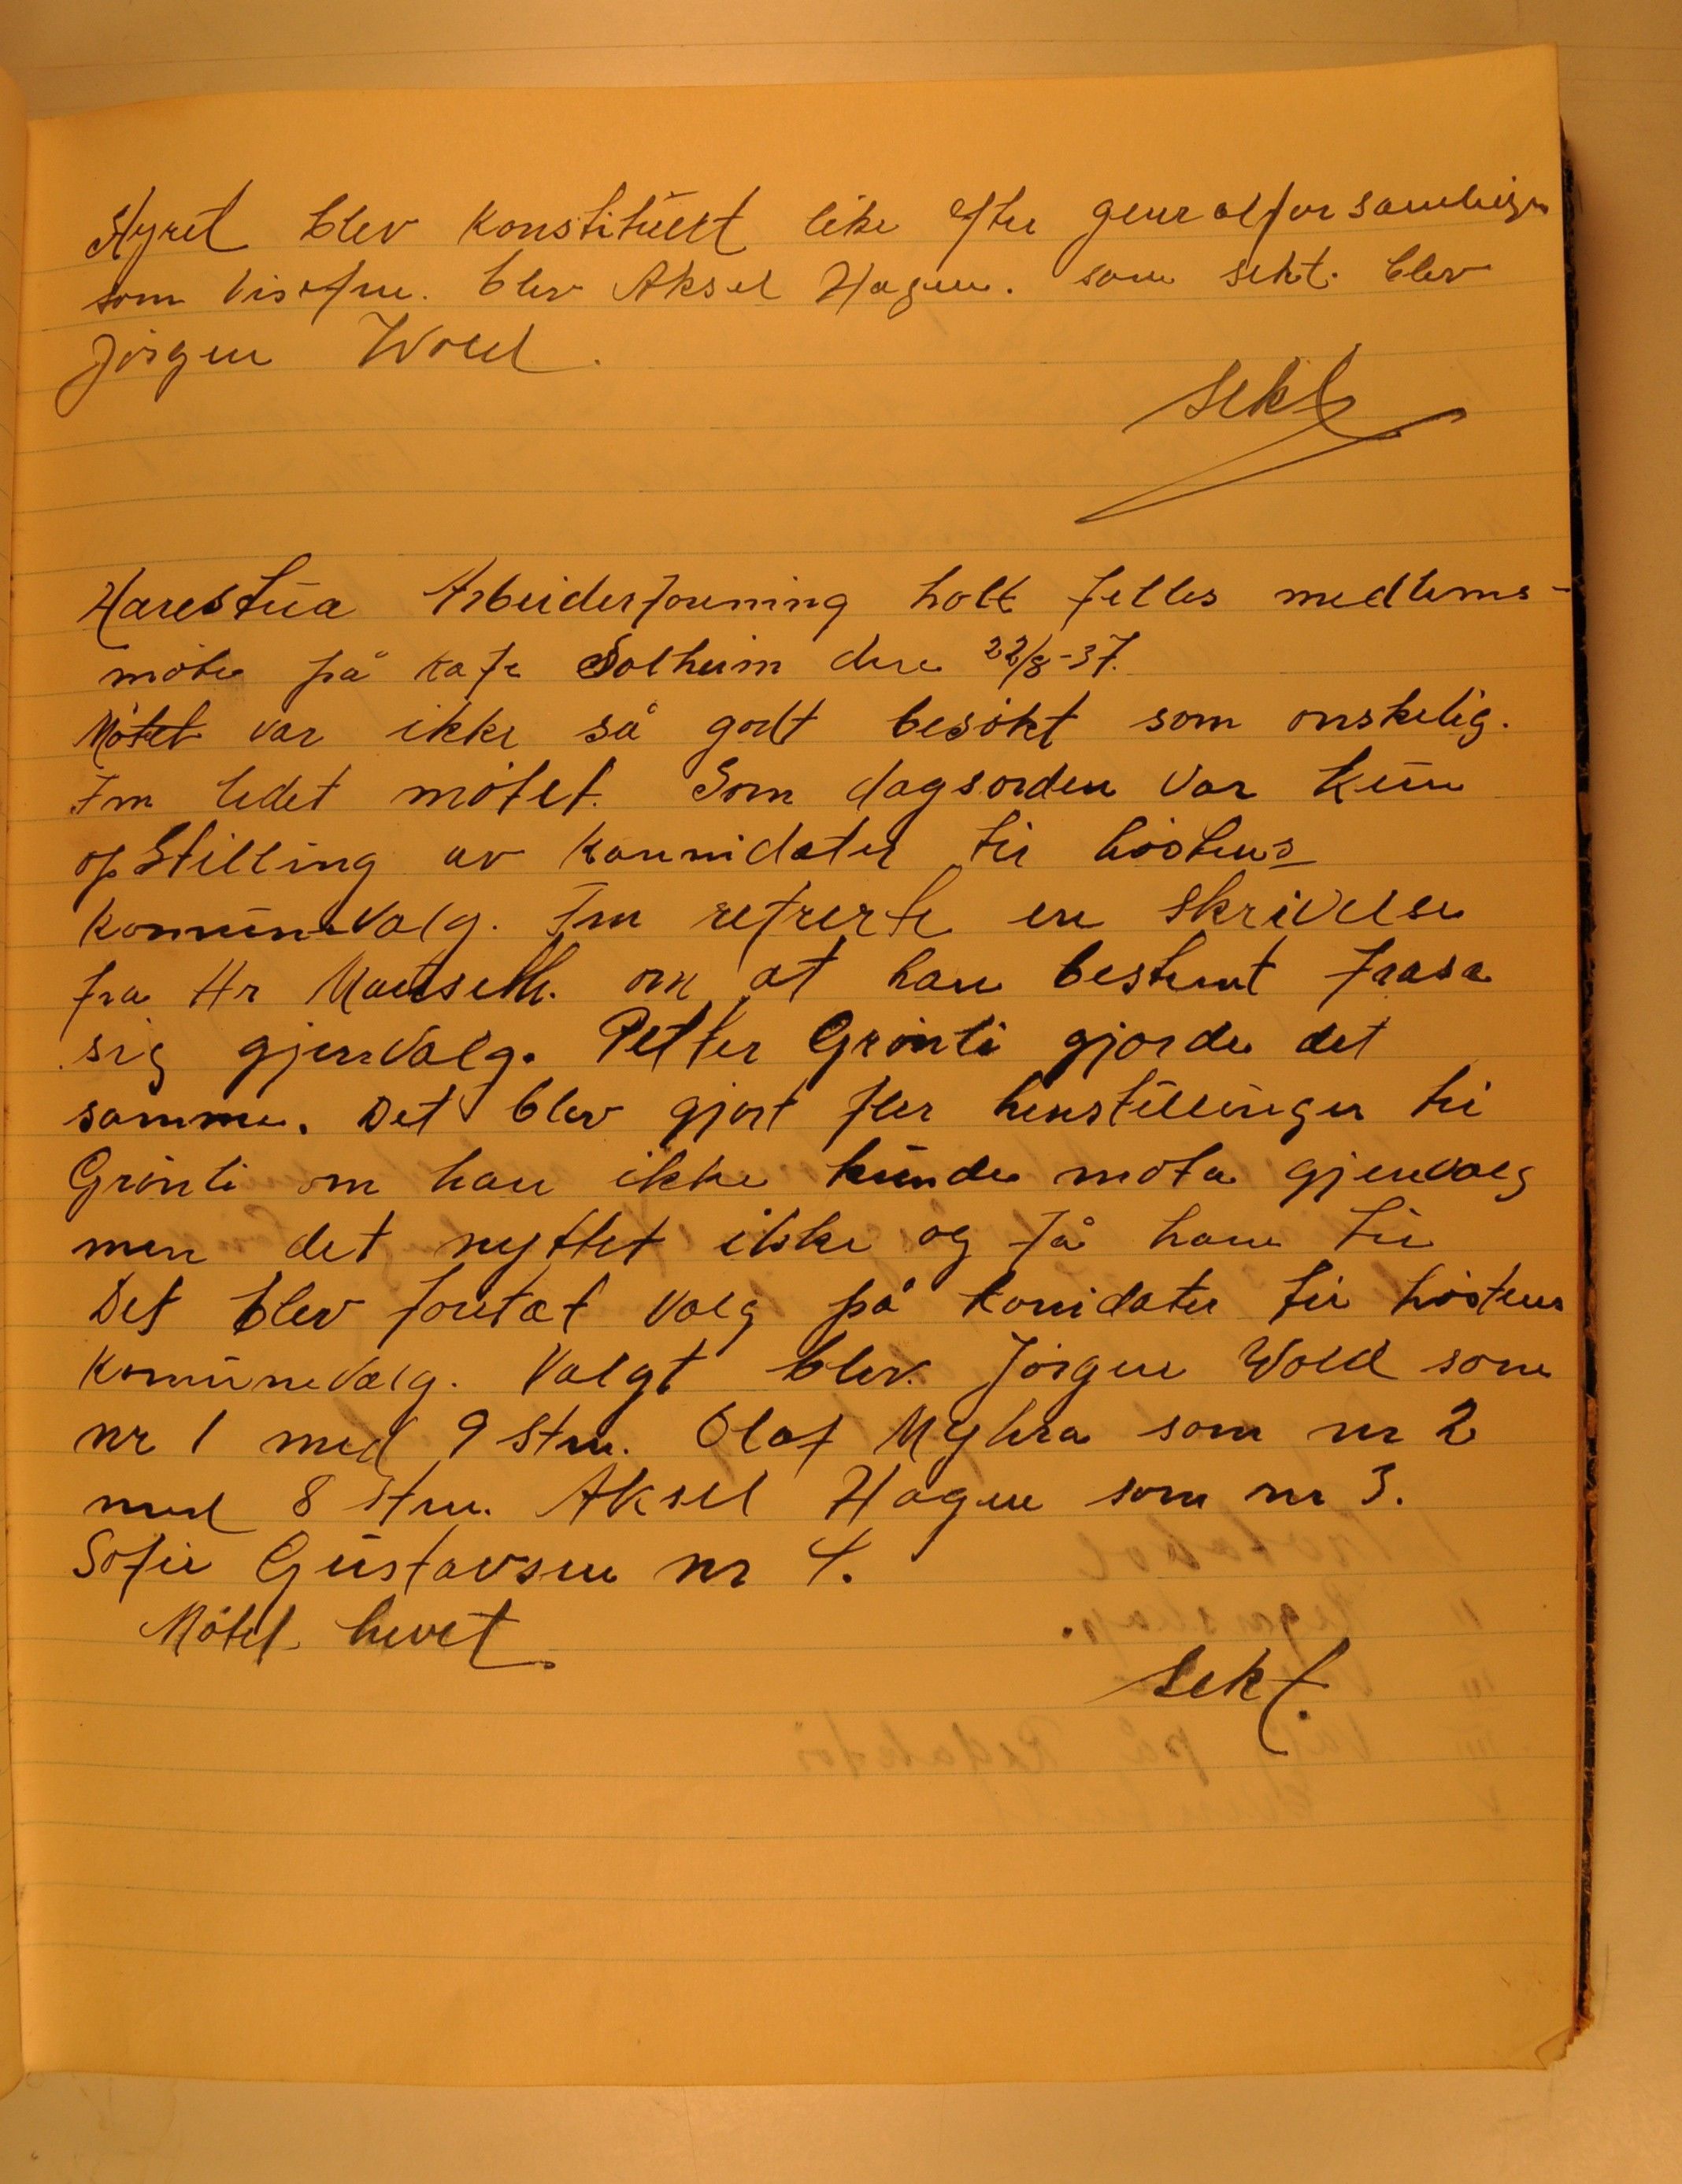 Styret blev konstituert like efter generalforsamlingen
som visefm. blev Aksel Hagen. som sekt. blev
Jörgen Wold.
Sekt
Harestua Arbeiderforening holt felles medlems-
möte på kafe Solheim den 22/8-37.
Mötet var ikke så godt besökt som onskelig.
Fm ledet mötet. Som dagsorden var kun
opstilling av kannidater til höstens
kommunevalg. Fm refrerte en skrivelse
fra Hr om at han bestemt frasa
sig gjenvalg. Petter Grönli gjorde det
samme. Det blev gjort fler henstillinger til
Grönli om han ikke kunde mota gjenvalg
men det nyttet ikke og få ham til
Det blev foretat valg på konidater til höstens
kommunevalg. Valgt blev. Jörgen Wold som
nr 1 med 9 stm. Olaf Myhra som nr 2
med 8 stm. Aksel Hagen som nr 3.
Sofie Gustavsen nr 4.
Mötet hevet.
Sekt.